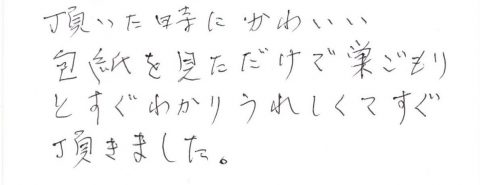 頂いた時にかわいい
包紙を見ただけで巣ごもり
とすぐわかりうれしくてすぐ
頂きました。